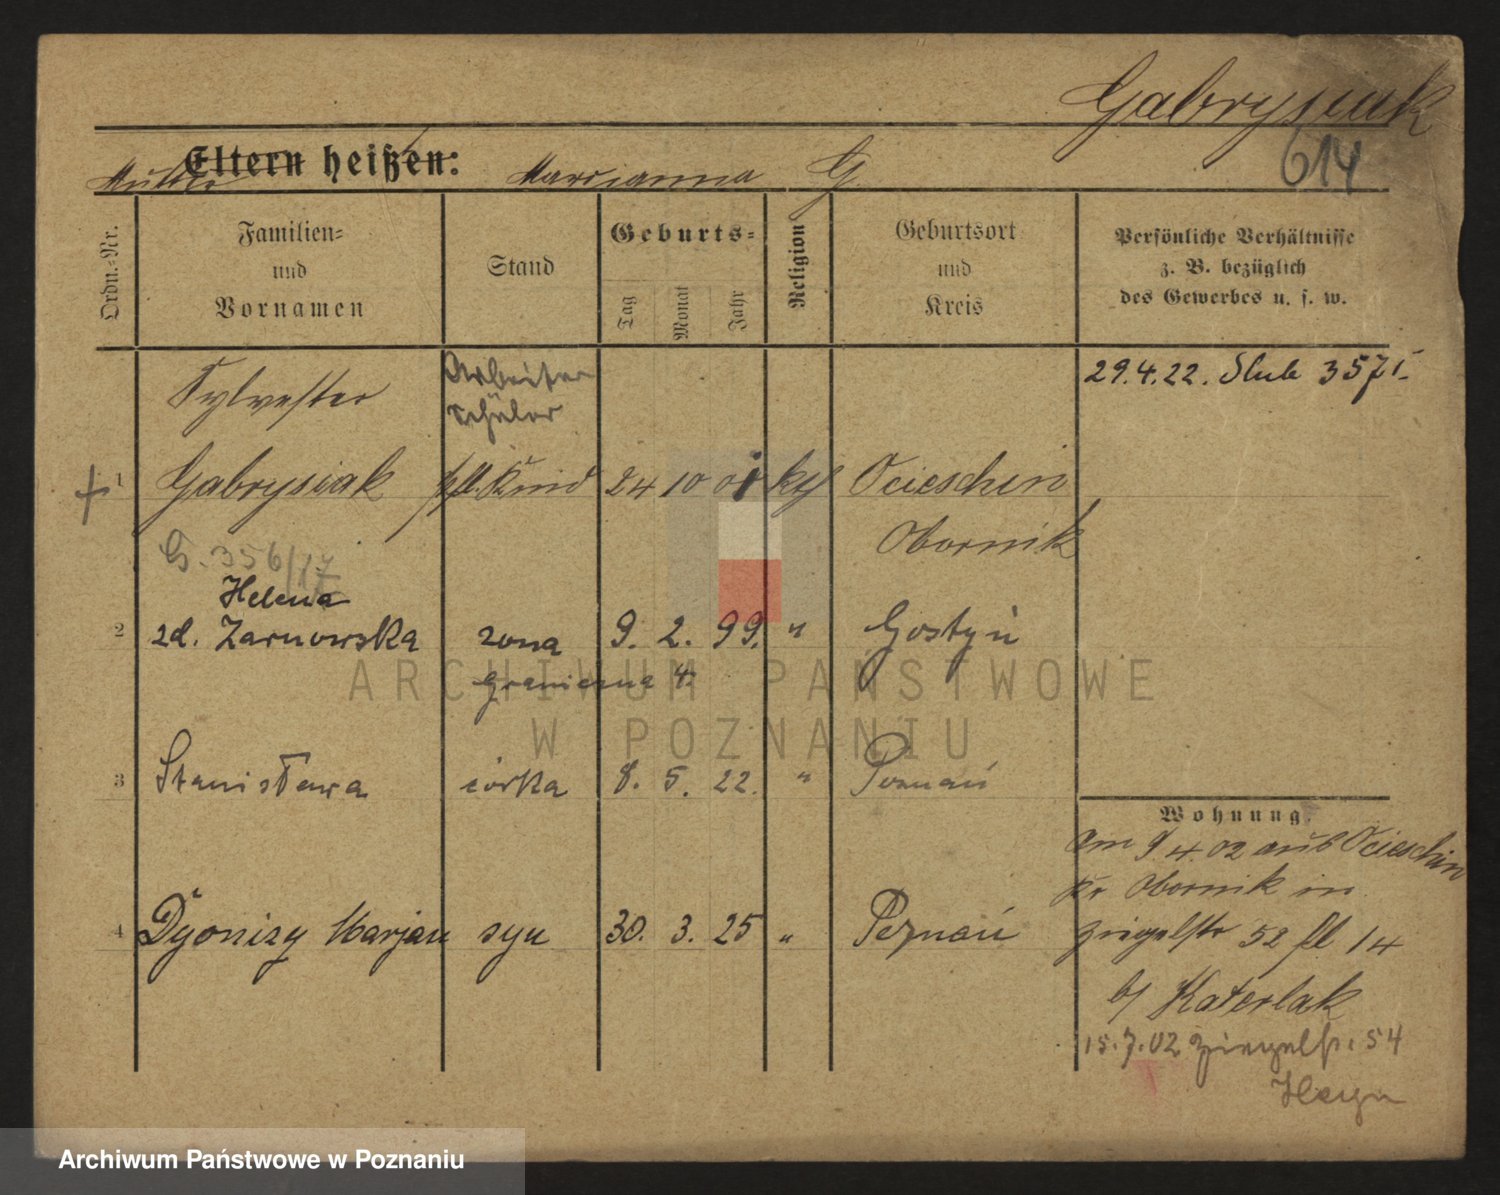 Gabrysiak
614
Eltern heißen:
Mutter Marianna G.
Ordn.-Nr.
Familien-
und
Vornamen
Stand
Geburts-
Tag
Monat
Jahr
Religion
Geburtsort
und
Kreis
Persönliche Verhältnisse
z. B. bezüglich
des Gewerbes u. s. w.
Arbeiter
29.4.22. Slub 357
Sylvester
Schüler
1 Gabrysiak Kind 24 10 01 Ocieschin
Obornik
G. 356/17
Helena
2 zd. Żarnowska żona 9. 2. 99. " Gostyń
Graniczna 4.
3 Stanisława córka 8. 5. 22. " Poznań
4 Dyonizy Marjan syn 30. 3. 25 " Poznań
Wohnung.
am 9 4. 02 aus Ocieschin
Kr Obornik in
Ziegelstr 52 14
b/ Katerlak
15.7.02 Ziegelstr. 54
Heyn
ARCHIWUM PAŃSTWOWE
W POZNANIU
Archiwum Państwowe w Poznaniu